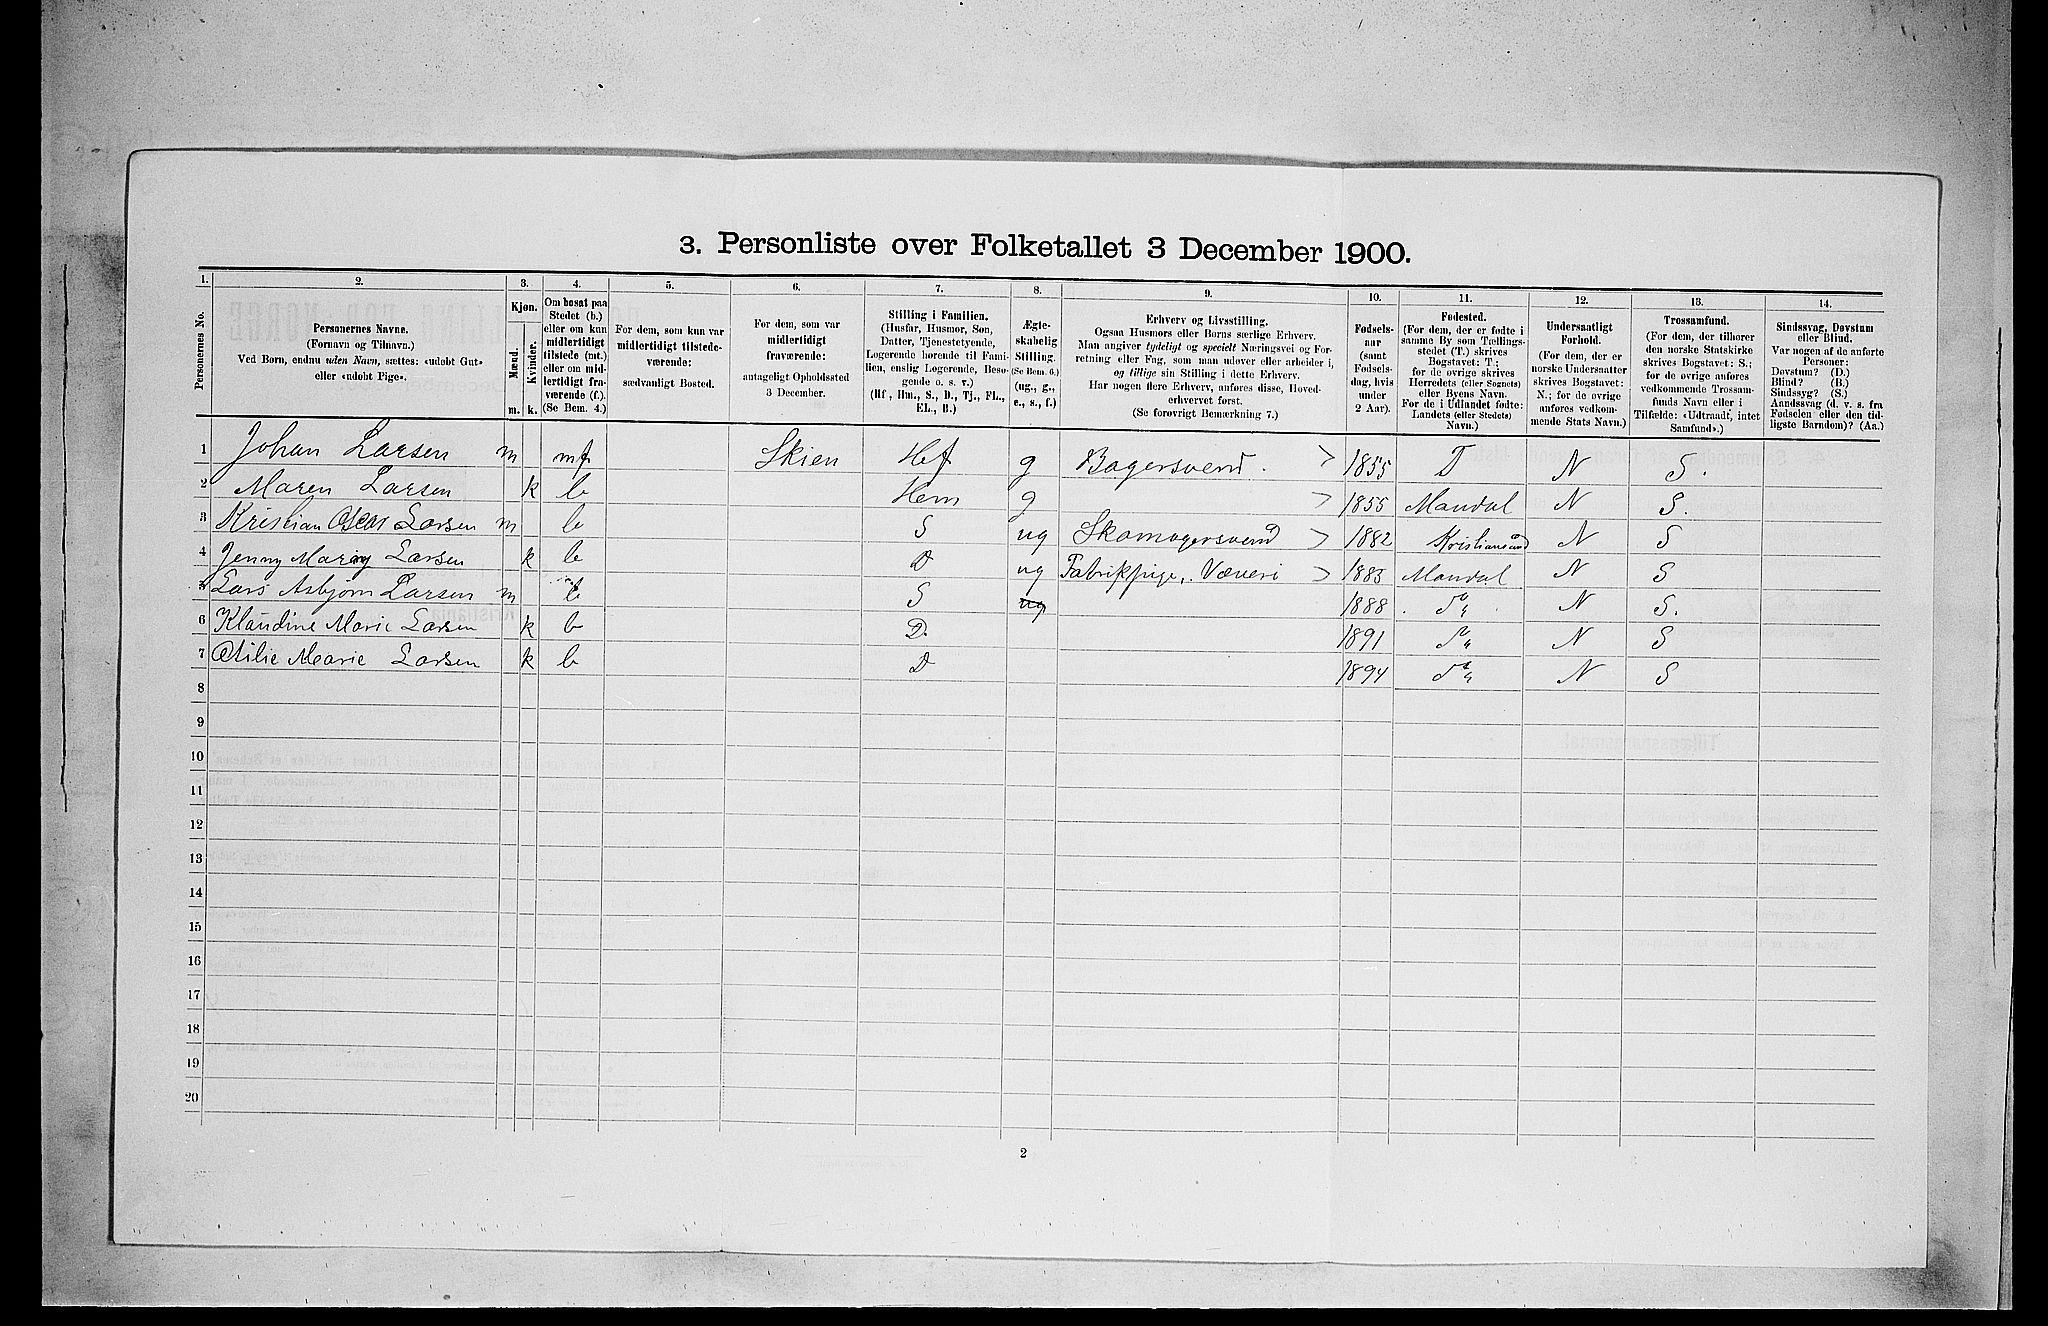 3. Personliste over Folketallet 3 December 1900.
1. 2. 3. 4. 5. 6. 7. 8. 9. 10. 11. 12. 13. 14.
Personernes No.
Personernes Navne.
(Fornavn og Tilnavn.)
Ved Børn, endnu uden Navn, sættes: «udøbt Gut»
eller «udøbt Pige».
Kjøn.
Mænd.
Kvinder.
m. k.
Om bosat paa
Stedet (b.)
eller om kun
midlertidigt
tilstede (mt.)
eller om mid-
lertidigt fra-
værende (f.).
(Se Bem. 4.)
For dem, som kun var
midlertidigt tilstede-
værende:
sædvanligt Bosted.
For dem, som var
midlertidigt
fraværende:
antageligt Opholdssted
3 December.
Stilling i Familien.
(Husfar, Husmor, Søn,
Datter, Tjenestetyende,
Logerende hørende til Fami-
lien, enslig Logerende, Besø-
gende o. s. v.)
(Hf, Hm., S., D., Tj., FL.,
EL., B.)
Ægte-
skabelig
Stilling.
(Se Bem. 6.)
(ug., g.,
e., s., f.)
Erhverv og Livsstilling.
Ogsaa Husmors eller Børns særlige Erhverv.
Man angiver tydeligt og specielt Næringsvei og For-
retning eller Fag, som man udøver eller arbeider i,
og tillige sin Stilling i dette Erhverv.
Har nogen flere Erhverv, anføres disse, Hoved-
erhvervet først.
(Se forøvrigt Bemærkning 7.)
Fødsels-
aar
(samt
Fødsels-
dag, hvis
under
2 Aar).
Fødested.
(For dem, der er fødte i
samme By som Tællings-
stedet (T.) skrives
Bogstavet: T.;
for de øvrige skrives
Herredets (eller Sognets)
eller Byens Navn.
For de i Udlandet fødte:
Landets (eller Stedets)
Navn.)
Undersaatligt
Forhold.
(For dem, der er
norske Undersaatter
skrives Bogstavet:
N.; for de øvrige
anføres vedkom-
mende Stats Navn.)
Trossamfund.
(For dem, der tilhører
den norske Statskirke
skrives Bogstavet: S.;
for de øvrige anføres
vedkommende Trossam-
funds Navn eller i
Tilfælde: «Udtraadt, intet
Samfund».)
Sindssvag, Døvstum
eller Blind.
Var nogen af de anførte
Personer:
Døvstum? (D.)
Blind? (B.)
Sindssyg? (S.)
Aandssvag (d. v. s. fra
Fødselen eller den tid-
ligste Barndom)? (Aa.)
1 Johan Larsen m mf Skien Hf g Bagersvend. 1855 T N S.
2 Maren Larsen k b Hem g 1855 Mandal N S.
3 Kristian Oscar Larsen m b S ug Skomagersvend 1882 Kristiansand N S
4 Jenny Larsen k b D ug Fabrikpige, Væveri 1885 Mandal N S
5 Lars Asbjørn Larsen m b S ug 1888 do N S.
6 Klaudine Marie Larsen k b D. 1891 do N S
7 Otilie Marie Larsen k b D 1894 do N S
8
9
10
11
12
13
14
15
16
17
18
19
20
2